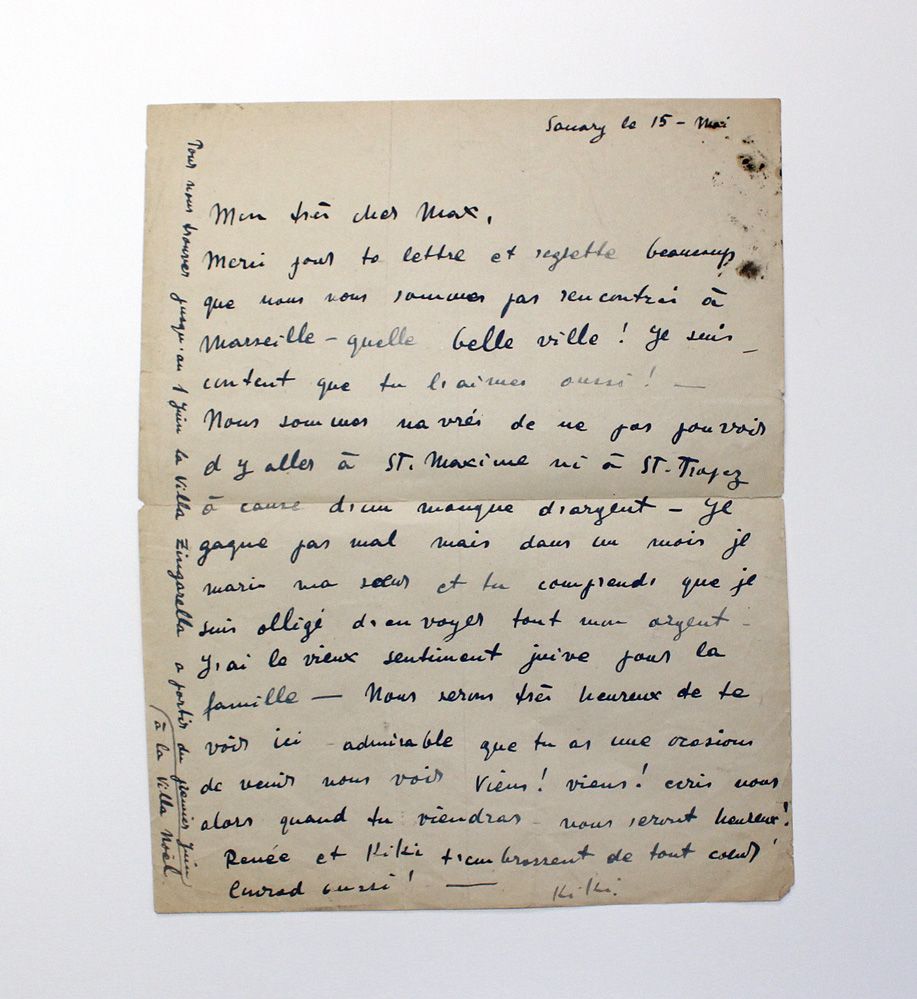 Sanary le 15 - Mai
Mon très cher Max,
Merci pour ta lettre et reglette beaucoup
que nous nous sommes pas rencontrei à
Marseille - quelle belle ville ! Je suis -
content que tu l'aimes aussi ! -
Nous sommes navréi de ne pas pouvoir
d'y aller à ST. Maxime ni à ST-Tropez
à cause d'un manque d'argent - Je
gagne pas mal mais dans un mois je
marie ma sœur et tu comprends que je
suis obligé d'envoyer tout mon argent -
J'ai le vieux sentiment juive pour la
famille - Nous serons très heureux de te
voir ici admirable que tu as une ocasions
de venir nous voir Viens ! viens ! ecris nous
alors quand tu viendras - nous seront heureux !
Renée et Kiki t'embrassent de tout cœur !
Conrad aussi ! - Kiki.
Pour nous trouver jusqu'au 1 Juin la Villa Zingarella a partir du premier Juin
à la Villa Noël